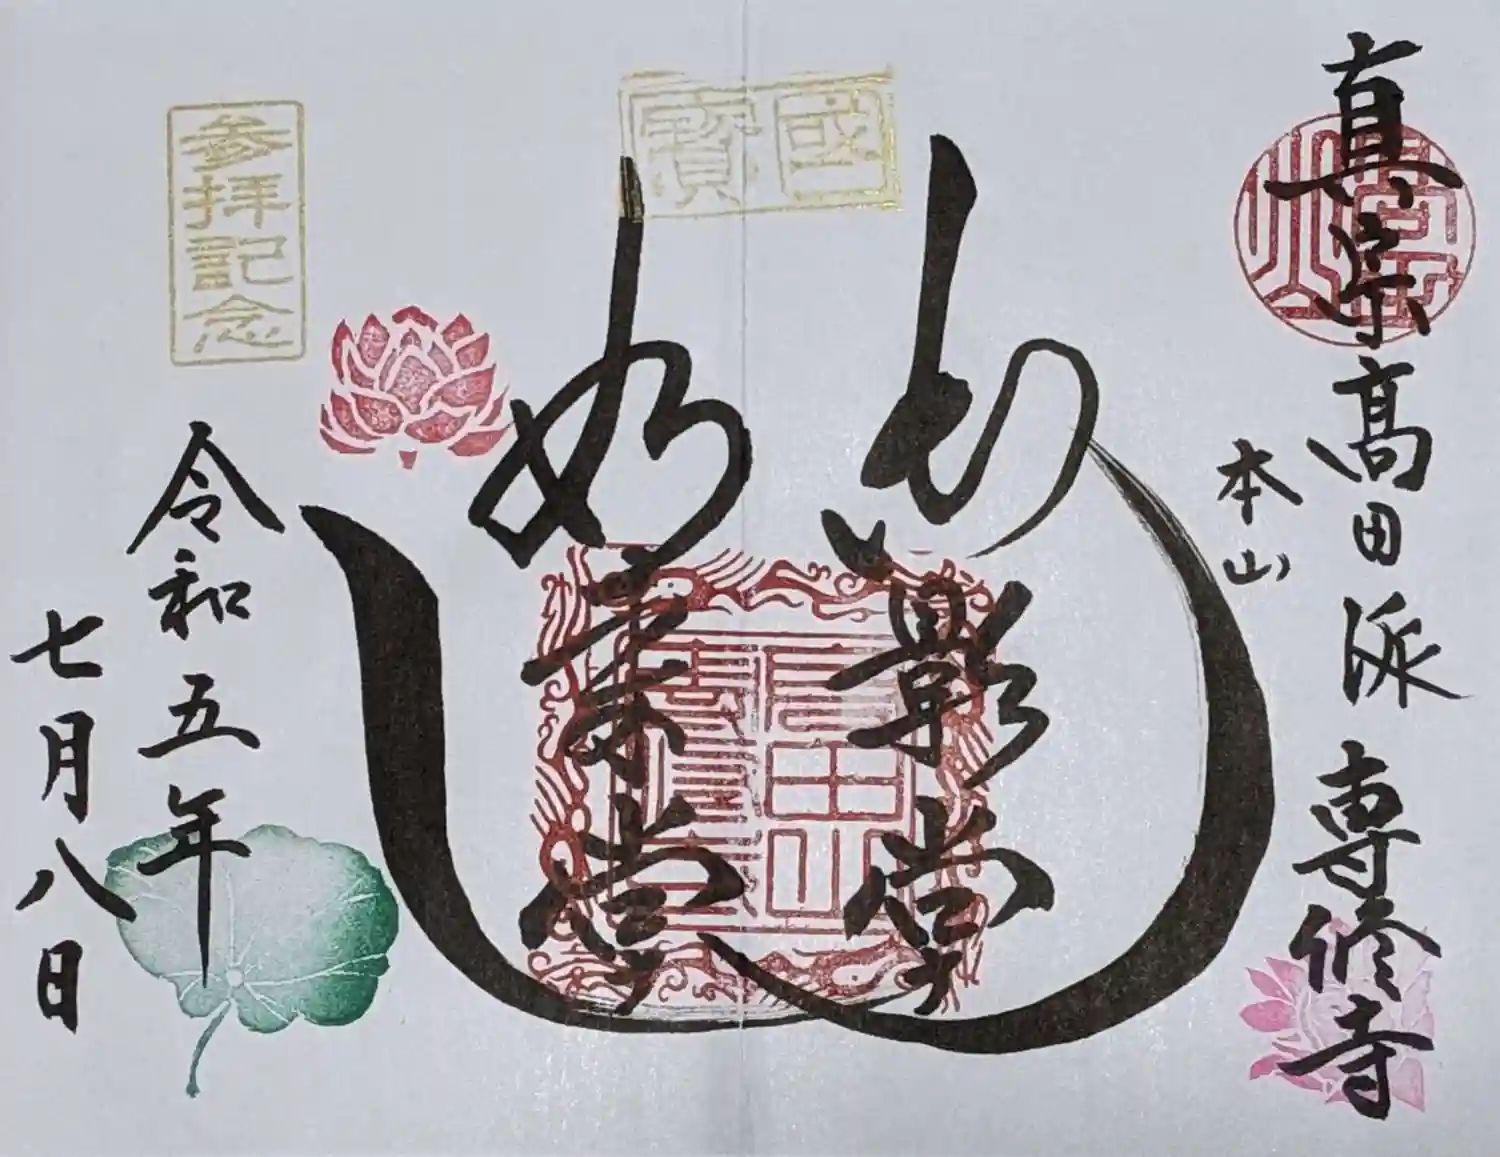 真宗髙田派
本山
専修寺
國寶
御影堂
如来堂
参拝記念
令和五年
七月八日